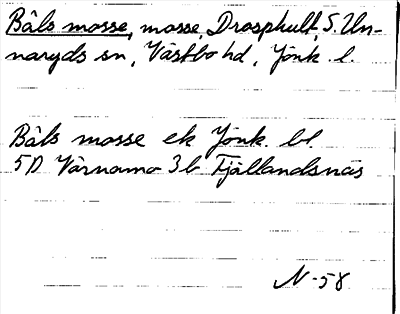 Båls mosse, mosse, Drosphult, S. Un-
naryds sn, Västbo hd, Jönk. l.
Båls mosse ek Jönk. bl
5D Värnamo 3b Fjällandsnäs
N-58